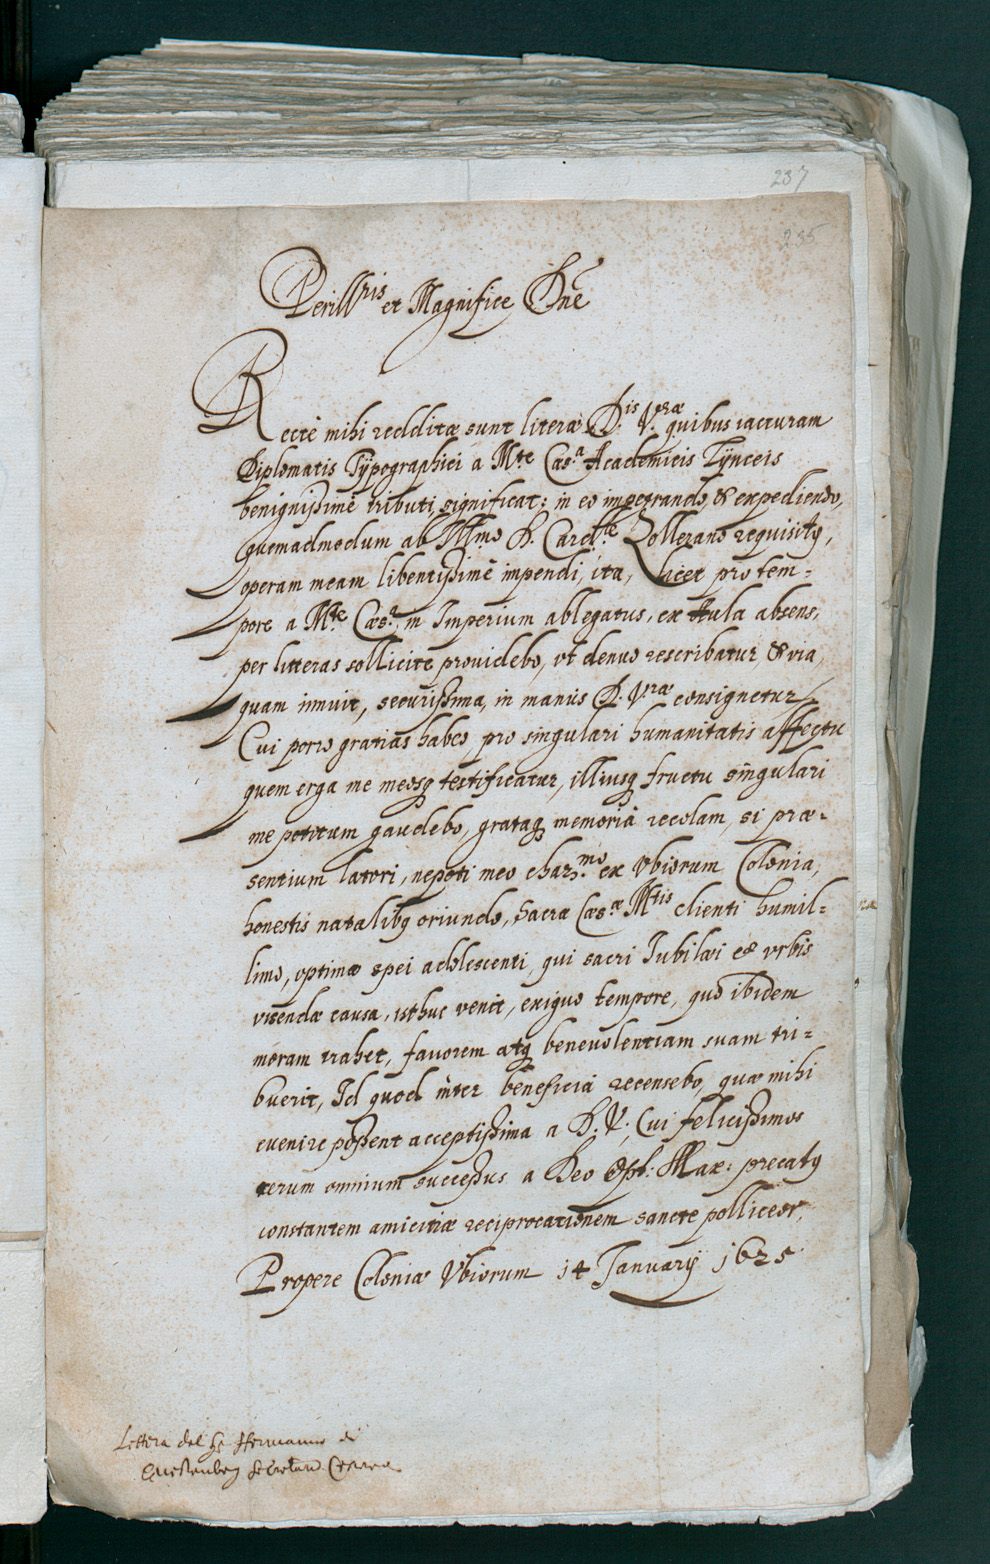 237
235
Perill^ris et Magnifice Dñe
Rectè mihi redditæ sunt literæ D.^is V.^ræ quibus iacturam
Diplomatis Typographici a M.^te Cæs.^a Academicis Lÿnceis
benignißimè tributi, significat: in eo impetrando, & expediendo,
quemadmodum ab Ill^mo D. Card.^le Zollerano requisitq,
operam meam libentißimè impendi, ita, licet pro tem=
pore a M.^te Cæs.^a in Imperium ablegatus, ex Aula absens,
per litteras sollicite prouidebo, vt denuo rescribatur, & via,
quam innuit, securißima, in manus D. V^ræ consignetur.
Cui porro gratias habeo, pro singulari humanitatis affectu
quem erga me meosq testificatur, illiusq fructu singulari
me potitum gaudebo, grataq memoriâ recolam, si præ=
sentium latori, nepoti meo char.^mo ex Vbiorum Colonia,
honestis natalibq oriundo, Sacræ Cæs.^æ M^tis clienti humil=
limo, optimæ spei adolescenti, qui sacri Iubilæi et vrbis
visendæ causa, isthuc venit, exiguo tempore, quo ibidem
moram trahet, fauorem atq beneuolentiam suam tri=
buerit, Id quod inter beneficia recensebo, quæ mihi
euenire poßent acceptißima a D. V. Cui felicißimos
rerum omnium succeßus a Deo Opt: Max: precatq
constantem amicitiæ reciprocationem sancte polliceor.
Propere Coloniæ Vbiorum 14 Januarij 1625
Lettera del Sr Hermanno di
Questenberg Secretario Cesareo